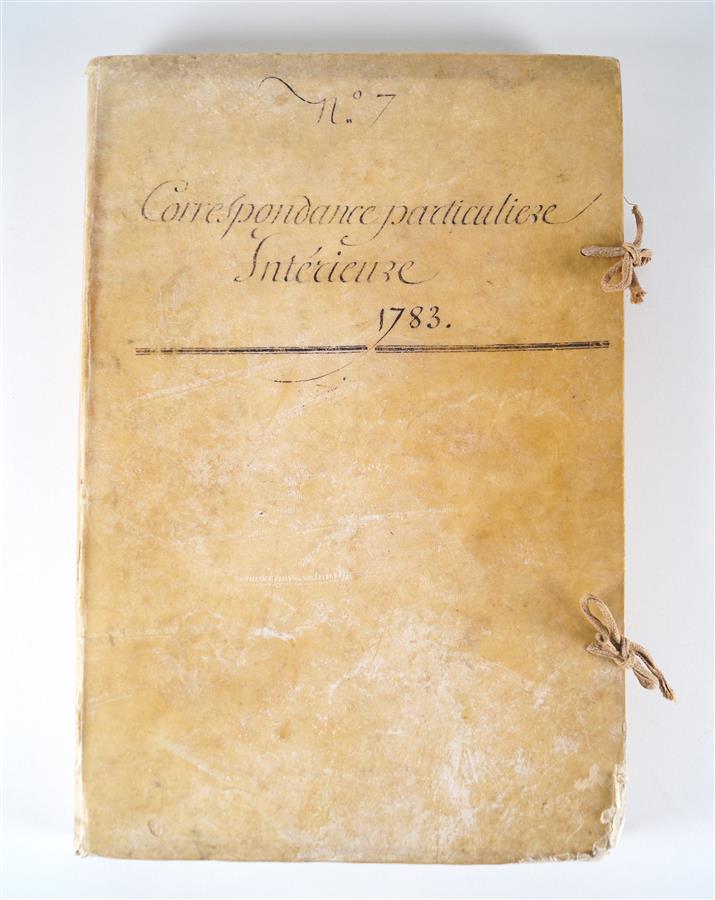 N.º 7
Correspondance particuliere
Intérieure
1783.